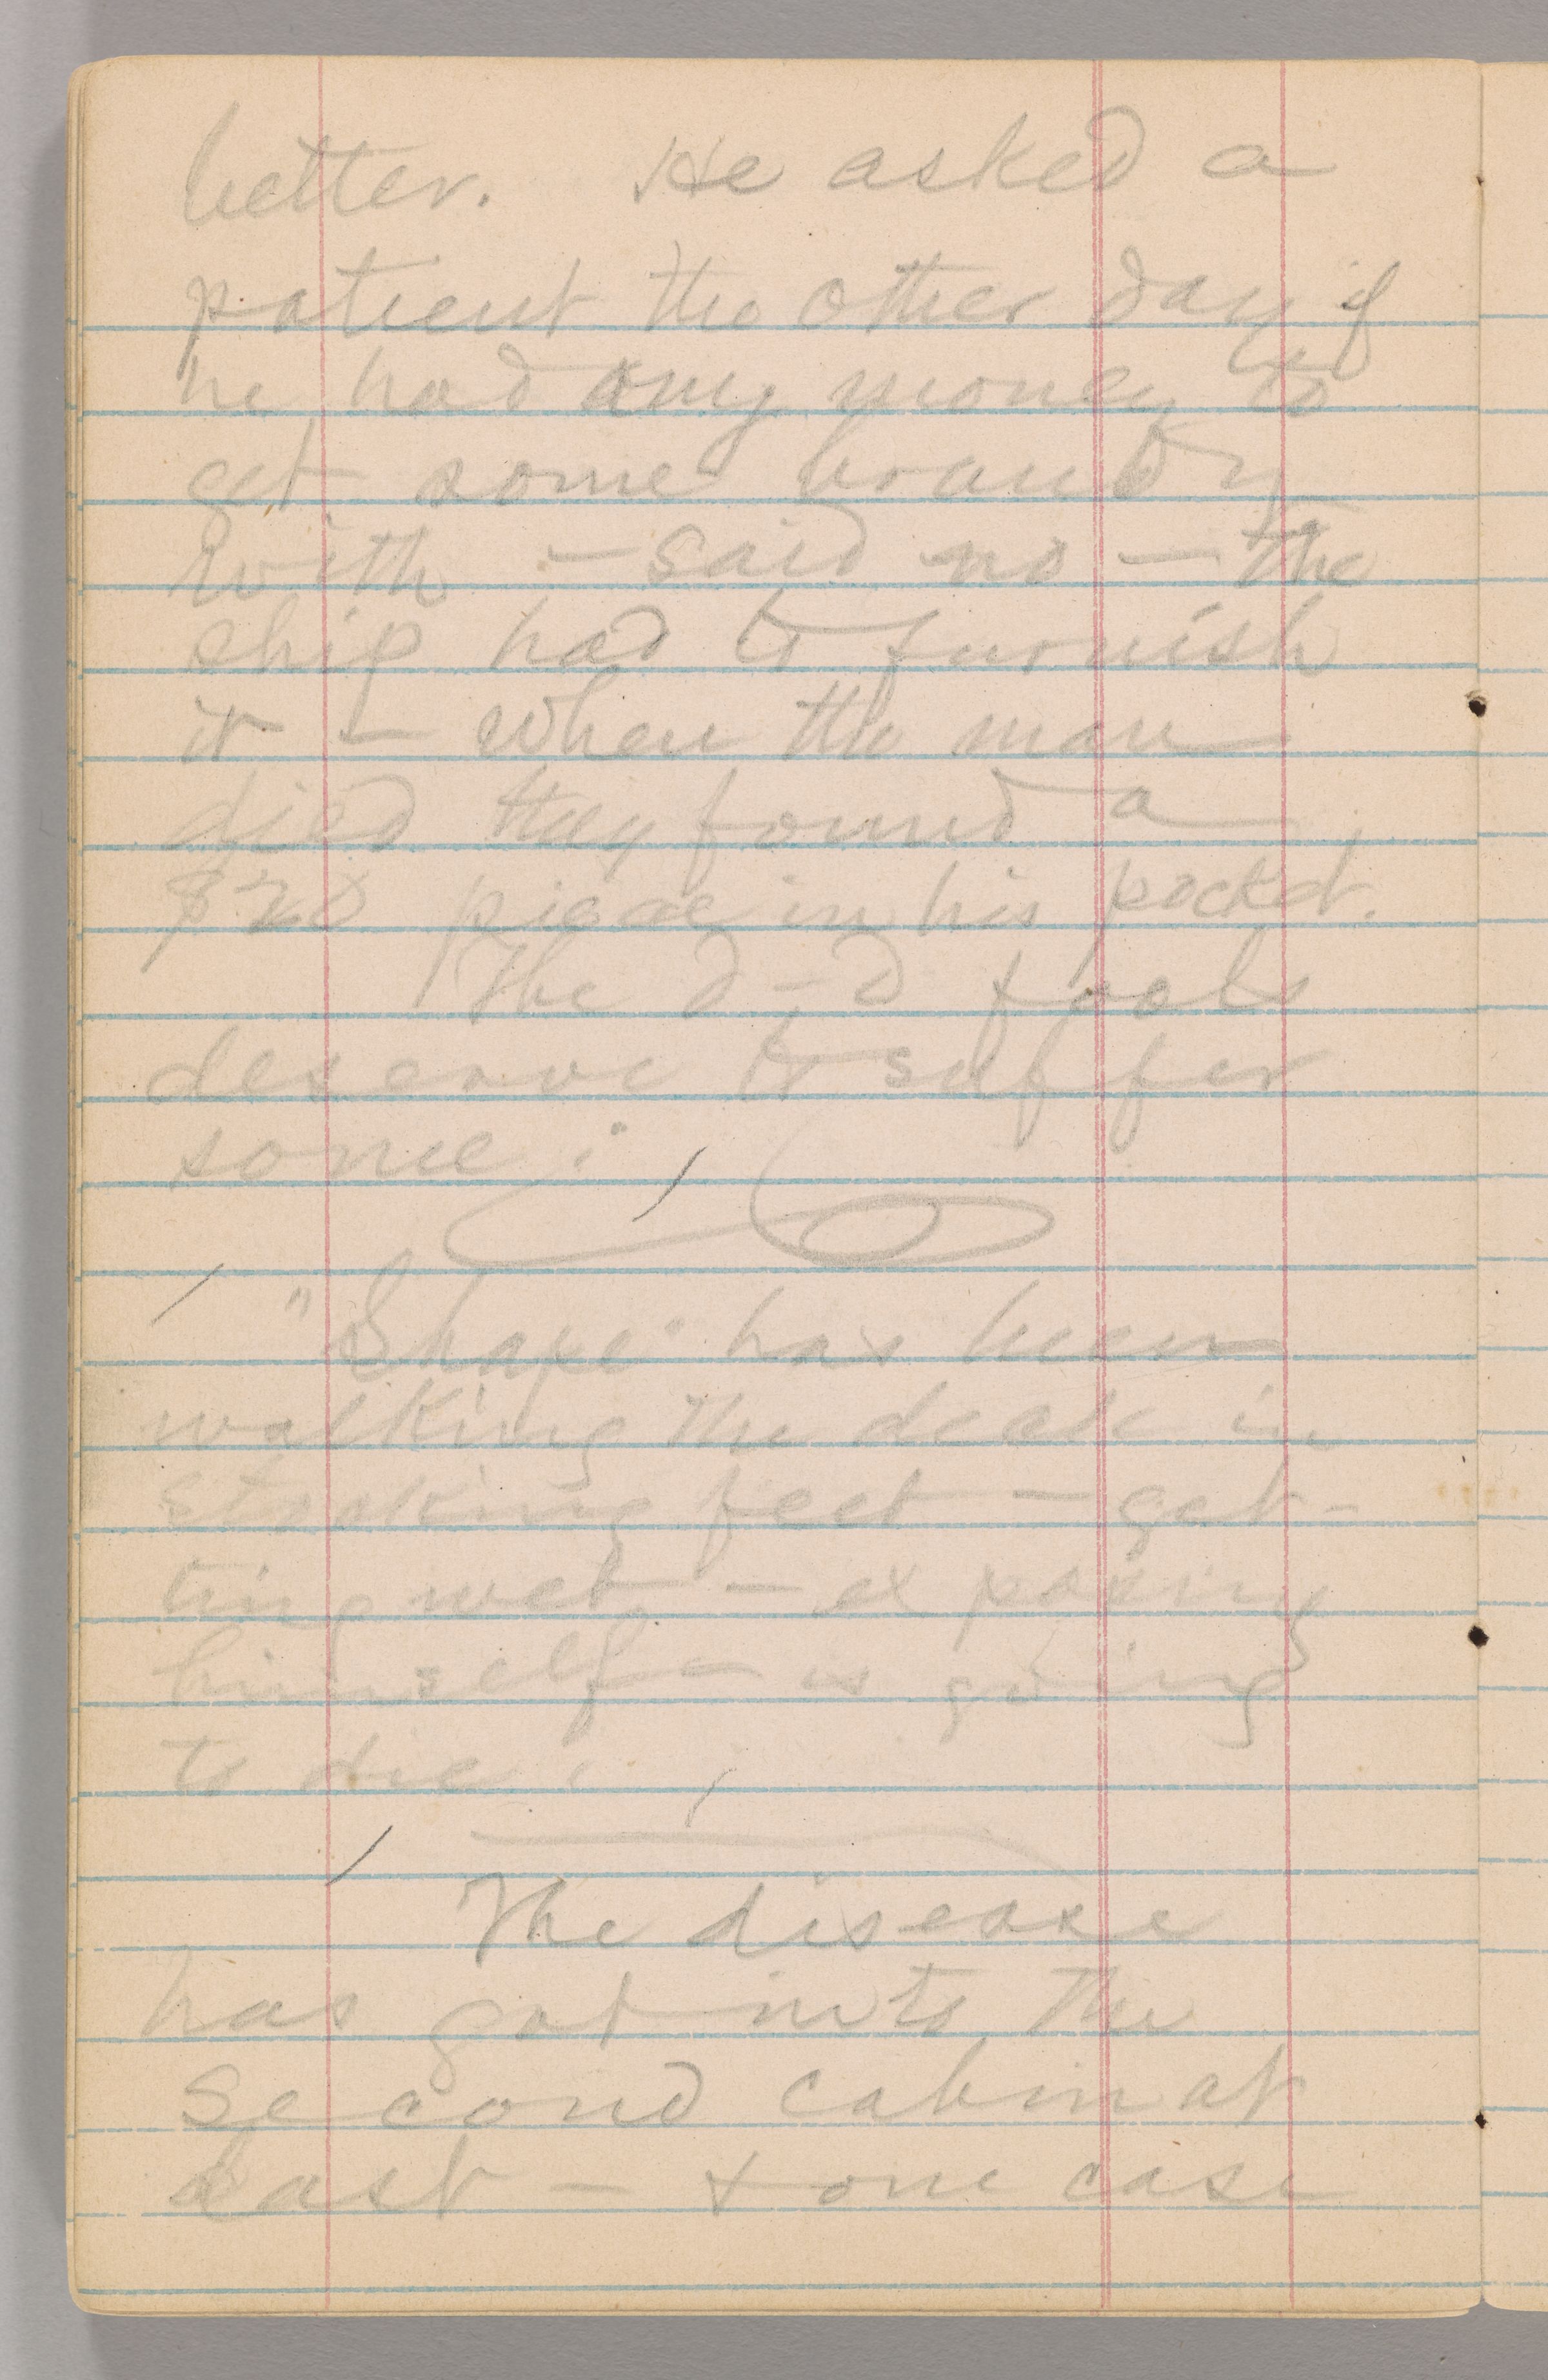 better. He asked a
patient the other day if
he had any money to
get some brandy
with – said no – the
ship had to furnish
it – When the man
died they found a
$20 piece in his pocket.
The d–d fools
deserve to suffer
some.
"Shape" has been
walking the deck in
stocking feet – get-
ting wet – exposing
himself – is going
to die.
The disease
has got into the
second cabin at
last – & one case